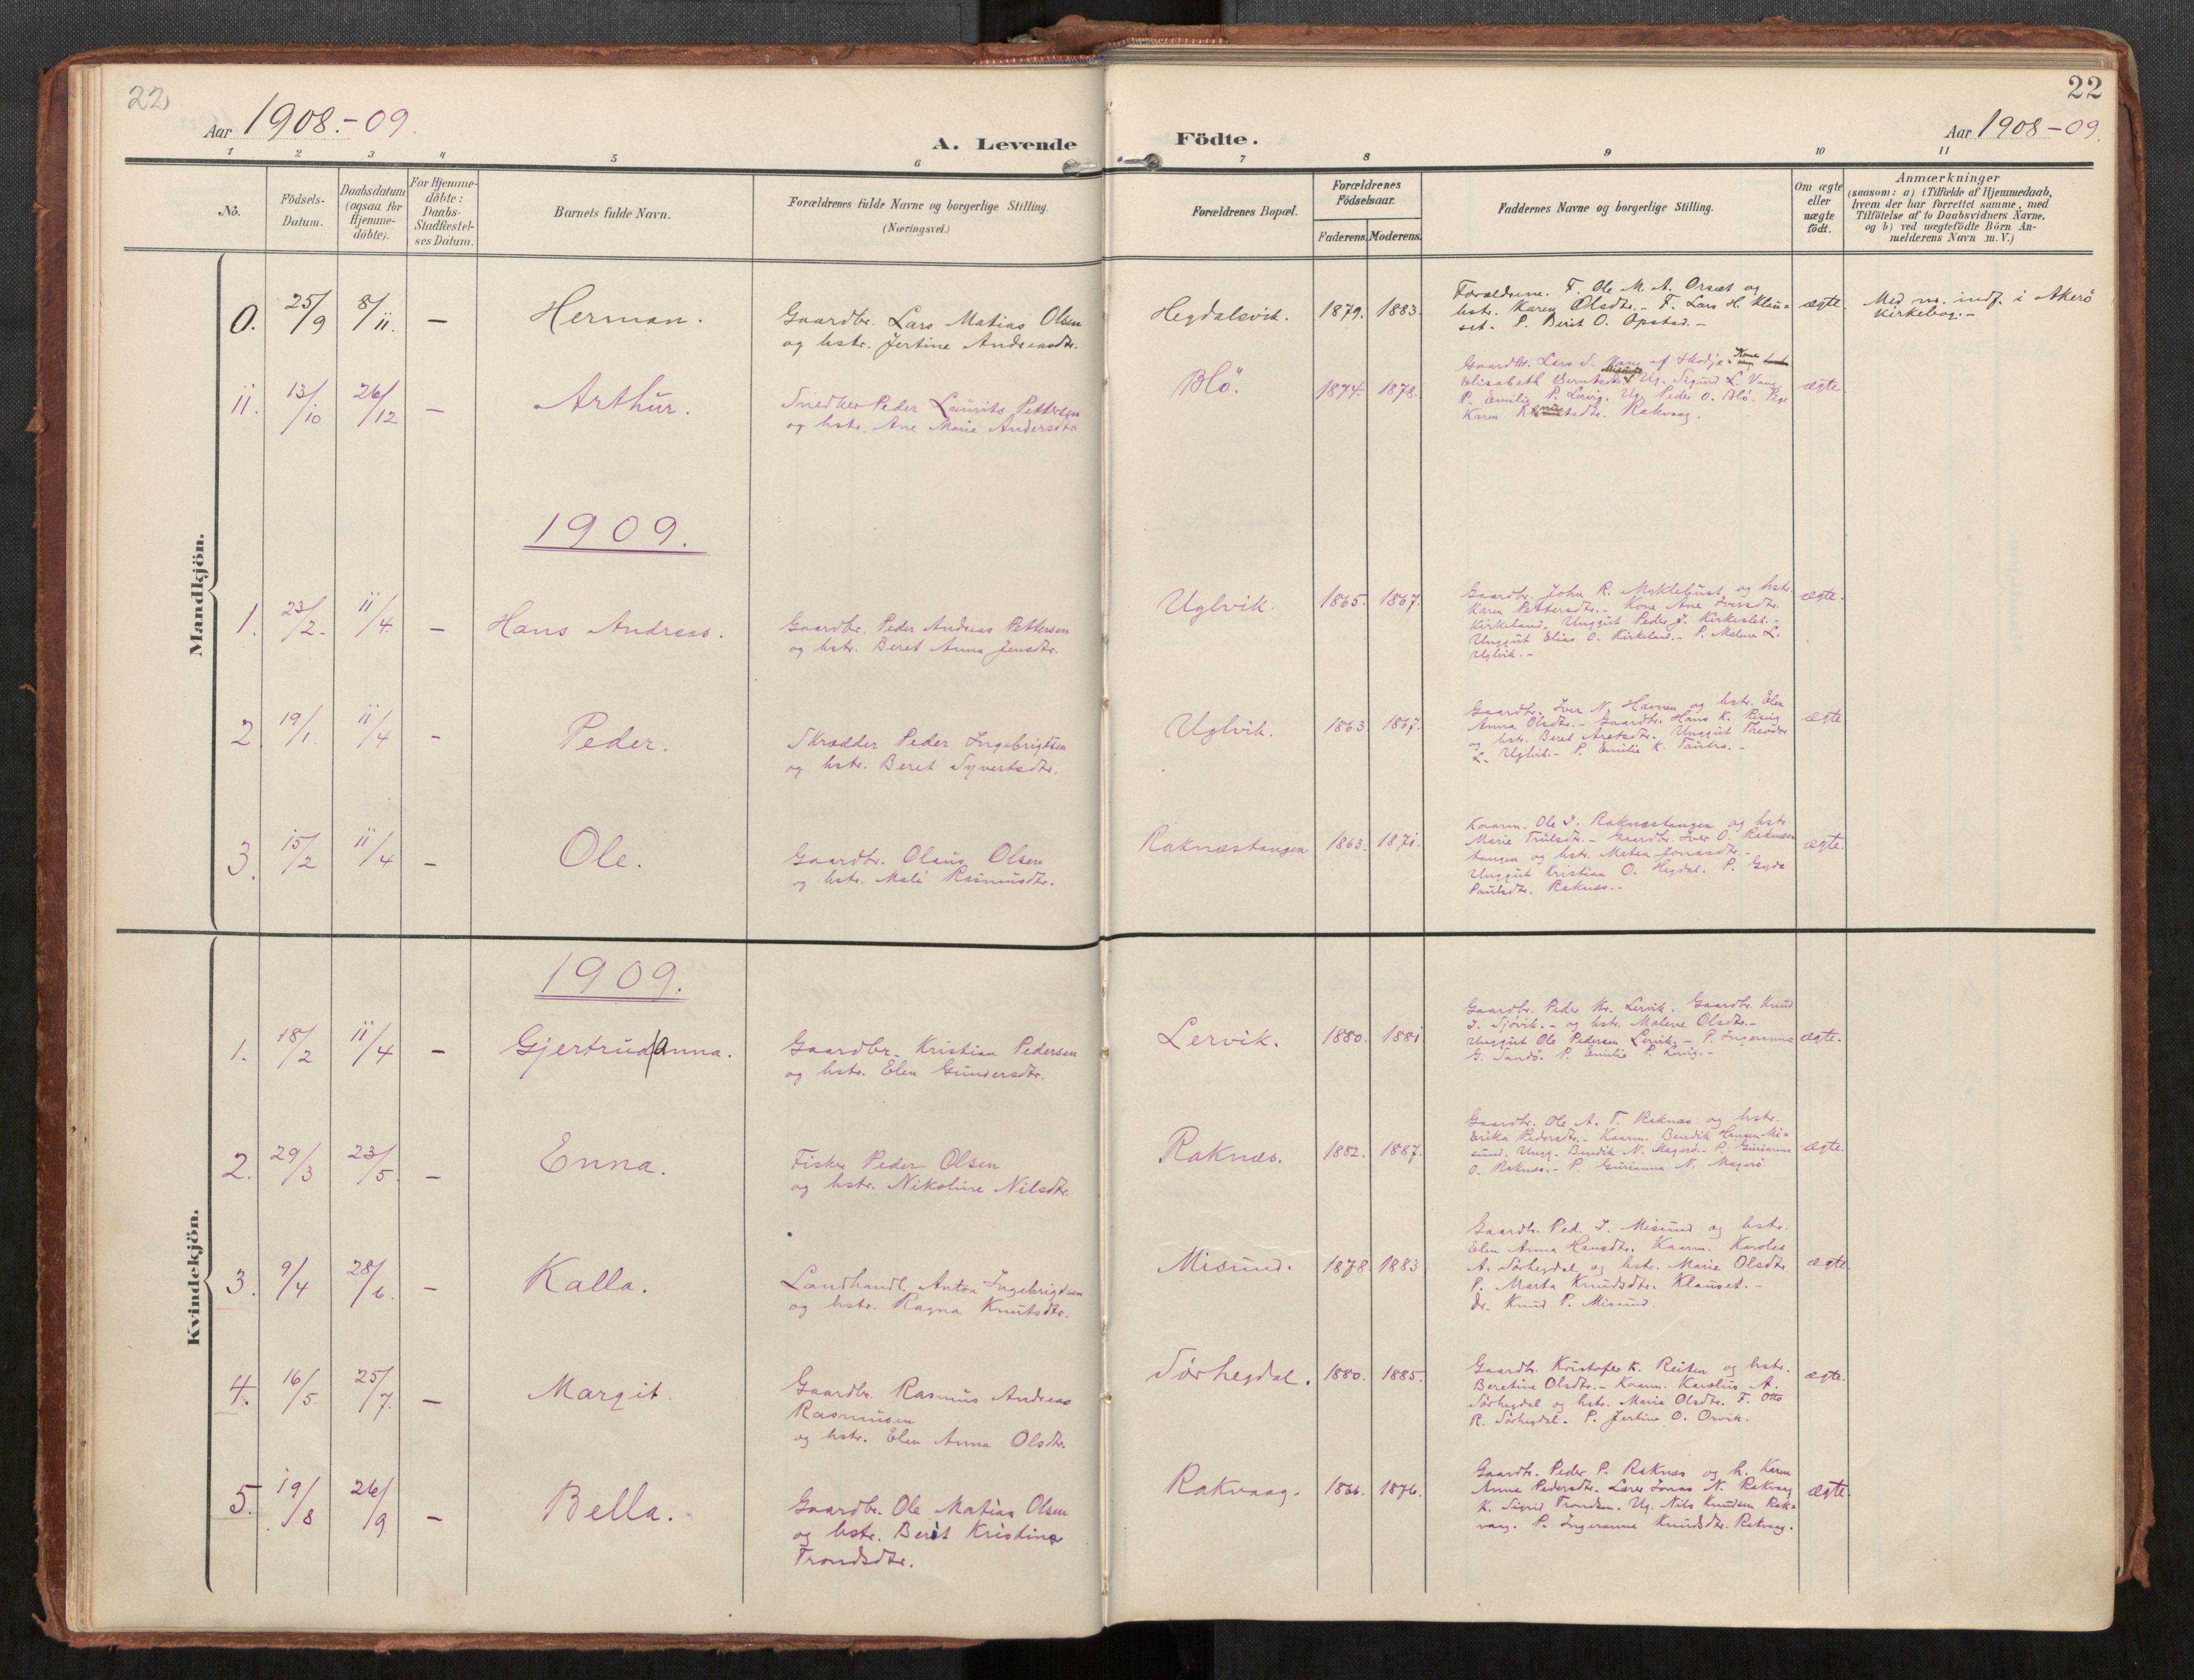 22
Aar 1908.-09.
A. Levende
1 2 3 4 5 6
Nö.
Födsels-
Datum.
Daabsdatum
(ogsaa for
Hjemme-
döbte).
For Hjemme-
döbte:
Daabs-
Stadfæstel-
ses Datum.
Barnets fulde Navn.
Forældrenes fulde Navne og borgerlige Stilling.
(Næringsvei.)
Mandkjön.
0. 25/9 8/11. – Herman. Gaardbr. Lars Matias Olsen
og hstr. Jertine Andreasdtr.
11. 13/10 26/12 – Arthur. Snedker Peder Laurits Pettersen
og hstr. Ane Marie Andersdtr
1909.
1. 23/2. 11/4. – Hans Andreas. Gaardbr. Peder Andreas Pettersen
og hstr. Beret Anna Jensdtr.
2. 19/1. 11/4 – Peder. Skrædder Peder Ingebrigtsen
og hstr. Beret Syvertsdtr.
3. 15/2 11/4 – Ole. Gaardbr. Olaus Olsen
og hstr. Mali Rasmusdtr.
Kvindekjön.
1909.
1. 18/2 11/4 – Gjertrud/anna. Gaardbr. Kristian Pedersen
og hstr. Elen Gundersdtr.
2. 29/3 23/5. – Enna. Fisker Peder Olsen
og hstr. Nikoline Nilsdtr.
3. 9/4 28/6. – Kalla. Landhandl. Anton Ingebrigtsen
og hstr. Ragna Knutsdtr.
4. 16/5. 25/7. – Margit. Gaardbr. Rasmus Andreas
Rasmusen
og hstr. Elen Anna Olsdtr.
5. 19/8 26/9. – Bella. Gaardbr. Ole Matias Olsen
og hstr. Berit Kristina
Trondsdtr.
22
Aar 1908-09.
Födte.
7 8 9 10 11
Forældrenes Bopæl.
Forældrenes
Födselsaar.
Faderens. Moderens.
Faddernes Navne og borgerlige Stilling.
Om ægte
eller
uægte
födt.
Anmærkninger
(saasom: a) i Tilfælde af Hjemmedaab,
hvem der har forrettet samme, med
Tilföielse af to Daabsvidners Navne,
og b) ved uægtefödte Börn An-
melderens Navn m. V.)
Hegdalsvik. 1879. 1883.
Forældrene. F. Ole M. A. Orsæt og
hstr. Karen Olsdtr. - F. Lars H. Klau=
set. P. Berit O. Opstad. -
ægte.
Med no. indf. i Akerö
Kirkebog. -
Blö. 1874. 1878.
Gaardbr. Lars S. Vang af Skodje. Kone
Elisabeth Berntsdtr. Misund Ug. Sigurd L. Vang.
P. Emilie P. Lervig. Ug. Peder O. Blö. Pige
Karen Knutsdtr. Rakvaag.
ægte
Uglvik. 1865. 1867.
Gaardbr. John R. Myklebust og hstr.
Karen Pettersdtr. - Kone Ane Iversdtr.
Kirkeland. Unggut Peder J. Kirkeslet. -
Unggut Elias O. Kirkeland. - P. Malene L.
Uglvik. -
ægte.
Uglvik. 1863. 1867.
Gaardbr. Iver N. Havnen og hstr. Elen
Anna Olsdtr. - Gaardbr. Hans K. Risvig
og hstr. Beret Aretsdtr. Unggut Theodor
L. Uglvik. - P. Emilie K. Tautra. -
ægte
Raknæstangen 1863. 1871.
Kaarm. Ole I. Raknæstangen og hstr
Marie Trulsdtr. - Gaardbr. Iver O. Raknæs
tangen og hstr. Meten Jonasdtr. -
Unggut Kristian O. Hegdal. P. Gyda
Paulsdtr. Raknes. -
ægte.
Lervik. 1880. 1881
Gaardbr. Peder Kr. Lervik. Gaardbr. Knud
I. Sjövik. - og hstr. Malene Olsdtr. -
Unggut Ole Pedersen Lervik. - P. Ingeranna
G. Sandö. P. Emilie P. Lervig. -
ægte.
Raknæs. 1882. 1887.
Gaardbr. Ole A. T. Raknæs og hstr.
Erika Pedersdtr. - Kaarm. Bendik Hansen Mi=
sund. Ungg. Bendik N. Magerö. - P. Gurianna
O. Raknes. - P. Gurianna N. Magerö
ægte.
Misund. 1878. 1883
Gaardbr. Ped. I. Misund og hstr.
Elen Anna Hansdtr. Kaarm. Karoles
A. Sörhegdal og hstr. Marie Olsdtr.
P. Marta Knudsdtr. Klauset. -
dr. Knud P. Misund.
ægte.
Sörhegdal. 1880. 1885.
Gaardbr. Kristofer K. Reiten og hstr.
Beretine Olsdtr. - Kaarm. Karolus A.
Sörhegdal og hstr. Marie Olsdtr. F. Otto
R. Sörhegdal. P. Jertine O. Orvik.
ægte.
Rakvaag. 1866. 1876.
Gaardbr. Peder P. Raknæs og h. Karen
Anne Pedersdtr. Lærer Jonas N. Rakvaag
K. Sigrid Trondsen. Ug. Nils Knudsen Rak=
vaag. P. Ingeranna Knudsdtr. Rakvaag.
ægte.